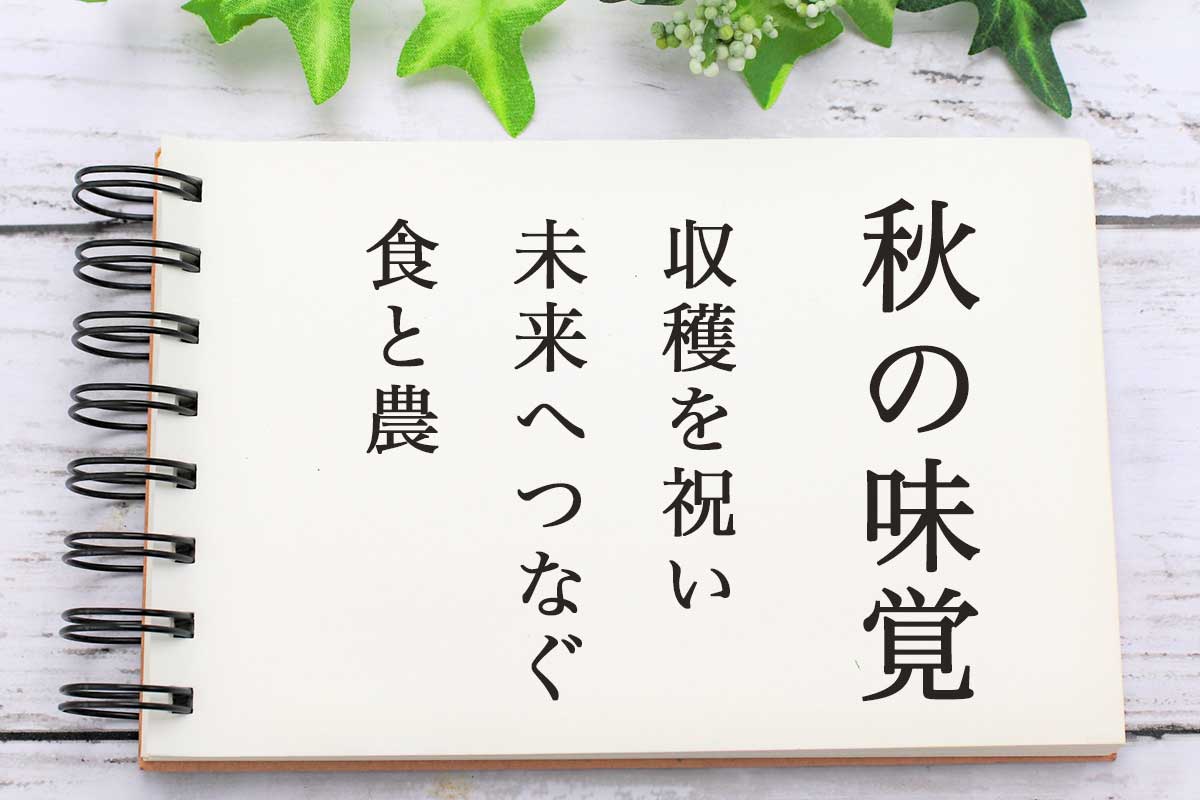 秋の味覚
収穫を祝い
未来へつなぐ
食と農